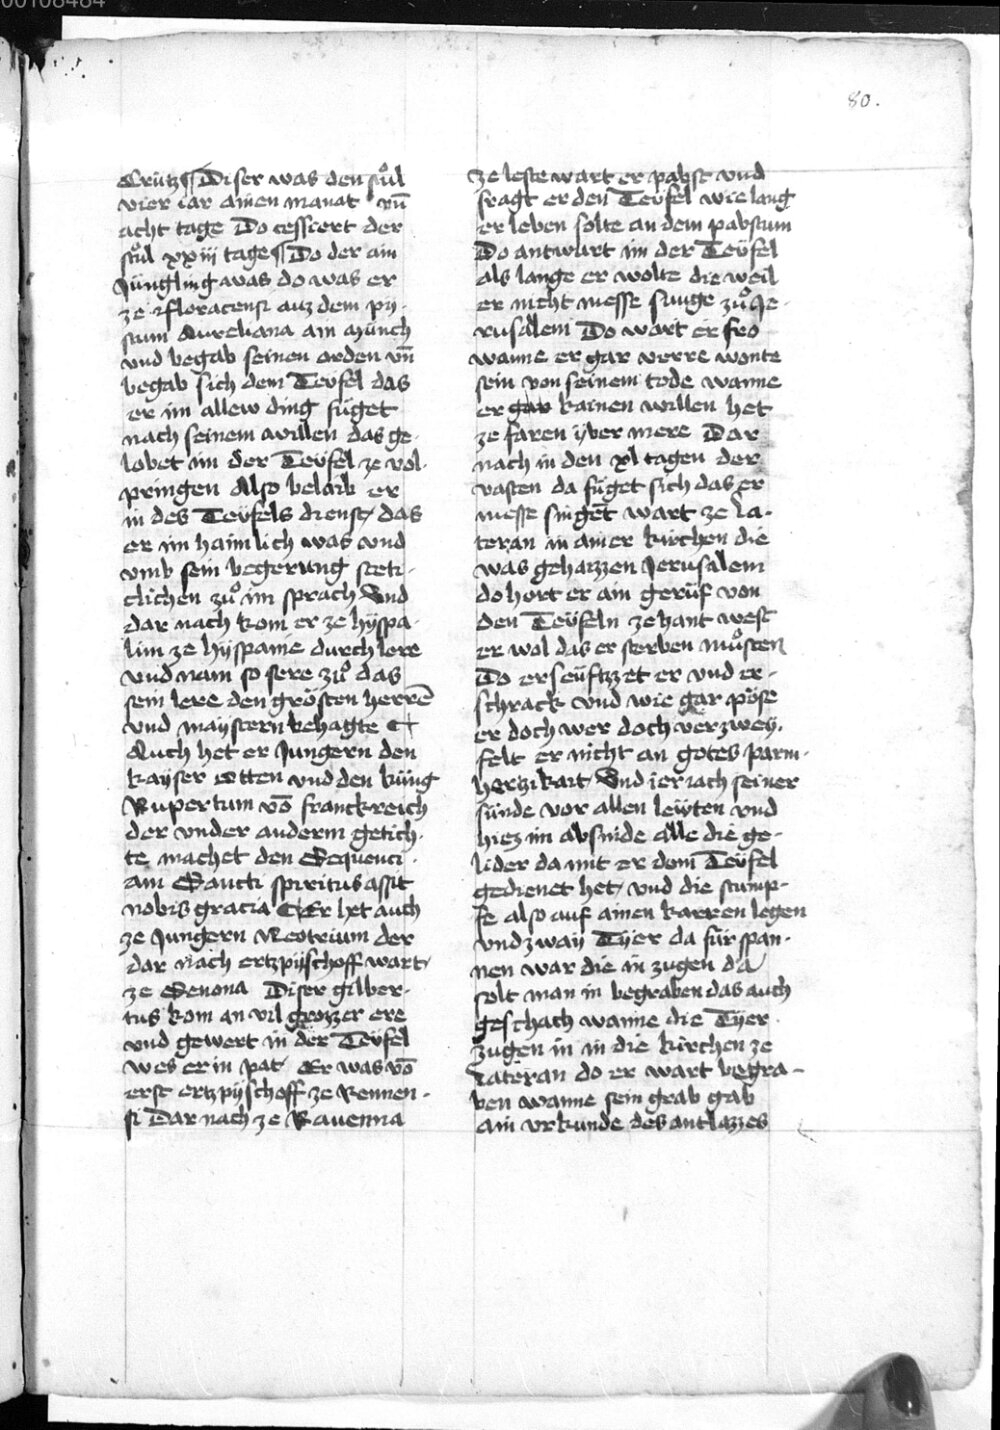 00108484
80.
Crützͤ ¶ Diser was den stuͦl
vier iar ainen manat vn̄
acht tage Do cessiert der
stuͦl xxiii tage ¶ Do der ain
Jüngling was do was er
ze floracensi auz dem py-
stum Aureliana ain münch
vnd begab seinen orden vn̄
begab sich dem Teüfel das
er im allew ding füget
nach seinem willen das ge-
lobet im der Teüfel ze vol-
pringen Also belaib er
in des Teüfels dienst das
er im haimlich was vnd
vmb sein begerung steti-
clichen zuͦ im sprach Vnd
dar nach kom er ze hyspa-
lim ze hyspanie durch lere
vnd nam so sere zuͦ das
sein lere den grösten herrē
vnd maystern behagte
Auch het er Jungern den
kayser otten vnd den küng
Rupertum vō franckreich
der vnder anderm getich-
te machet den Sequenci-
am Sancti spiritus assit
nobis gracia Er het auch
ze Jungern Leotrium der
dar nach ertzpyschoff wart
ze Senona Diser gilber-
tus kom an vil grozzer ere
vnd gewert in der Teüfel
wes er in pat Er was vō
erst ertzpyschoff ze Remen-
si Dar nach ze Rauenna
Ze leste wart er pabst vnd
fragt er den Teüfel wie lang
er leben solte an dem pabstum
Do antwurt im der Teüfel
als lange er wolte die weil
er nicht messe sunge zuͦ Je-
rusalem Do wart er fro
wanne er gar verre wonte
sein von seinem tode wanne
er gar kainen willen het
ze faren yber mere Dar
nach in den xl tagen der
vasten da füget sich das er
messe singēt wart ze la-
teran in ainer kirchen die
was gehaizzen Jerusalem
do hort er ain gerüf von
den Teüfeln ze hant west
er wol das er sterben muͦsten
Do erseüftzet er vnd er-
schrack vnd wie gar pöse
er doch wer doch verzwey-
felt er nicht an gotes parm-
hertzikait Vnd ieriach seiner
sünde vor allen leüten vnd
hiez im absnide alle die ge-
lider da mit er dom Teüfel
gedienet het vnd die stump-
fe also auf ainen karren legen
vnd zway Tyer da für span-
nen war die in zugen da
solt man in begraben das auch
geschach wanne die Tyer
zugen in in die kirchen ze
Lateran do er wart begra-
ben wanne sein grab grab
ain vrkunde des antlazzes